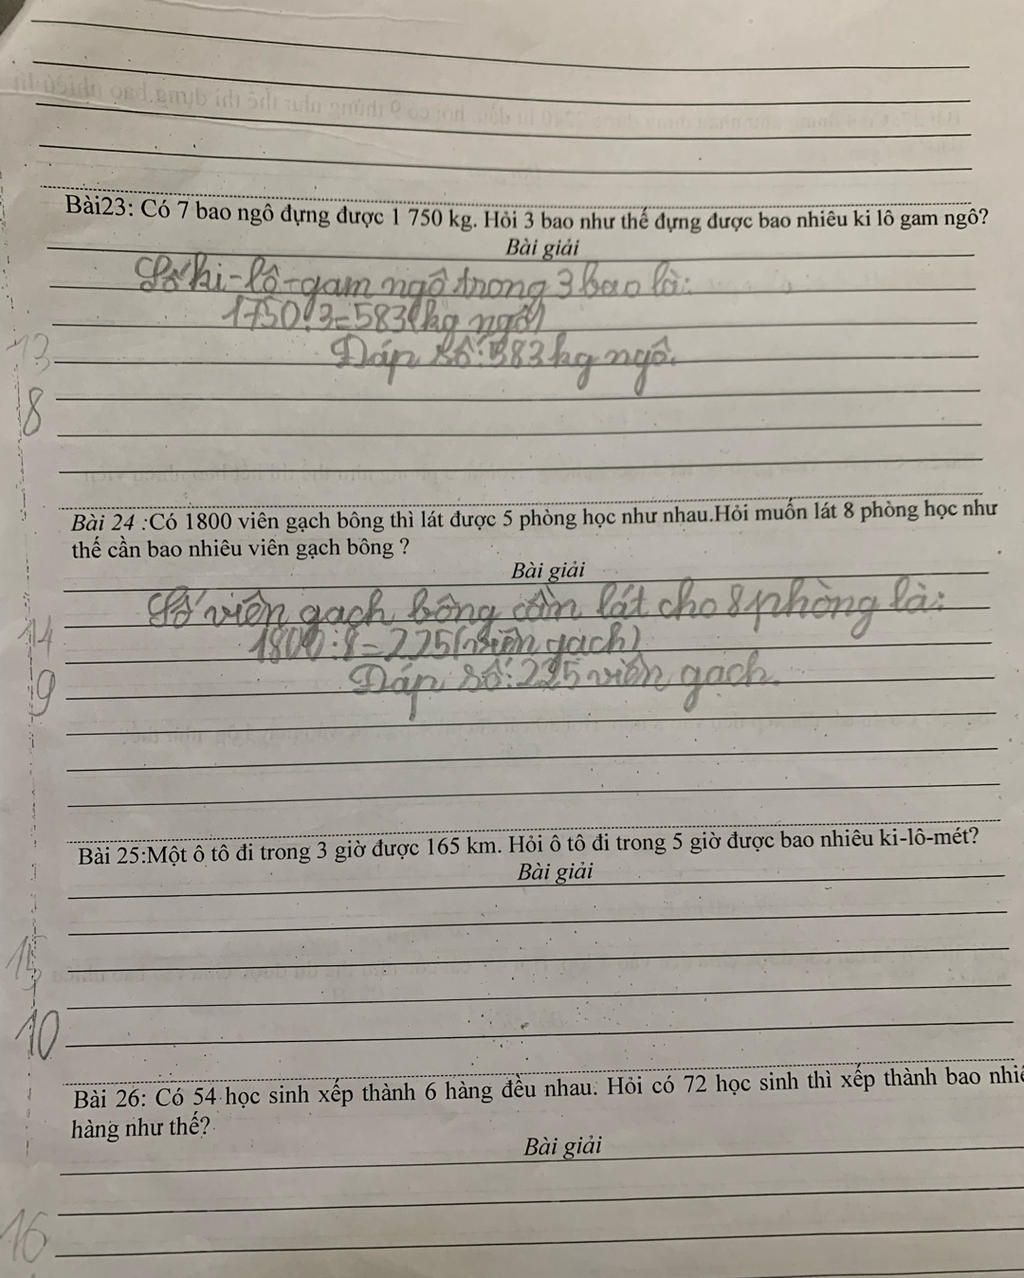 Bài23: Có 7 bao ngô đựng được 1 750 kg. Hỏi 3 bao như thế đựng được bao nhiêu ki lô gam ngô?
Bài giải
Số ki-lô-gam ngô trong 3 bao là:
1750:3=583(kg ngô)
Đáp số: 583 kg ngô.
13
8
Bài 24 :Có 1800 viên gạch bông thì lát được 5 phòng học như nhau.Hỏi muốn lát 8 phòng học như
thế cần bao nhiêu viên gạch bông ?
Bài giải
Số viên gạch bông cần lát cho 8 phòng là:
1800:8=225(viên gạch)
Đáp số: 225 viên gạch.
14
9
Bài 25:Một ô tô đi trong 3 giờ được 165 km. Hỏi ô tô đi trong 5 giờ được bao nhiêu ki-lô-mét?
Bài giải
15
10
Bài 26: Có 54 học sinh xếp thành 6 hàng đều nhau. Hỏi có 72 học sinh thì xếp thành bao
hàng như thế?
Bài giải
16